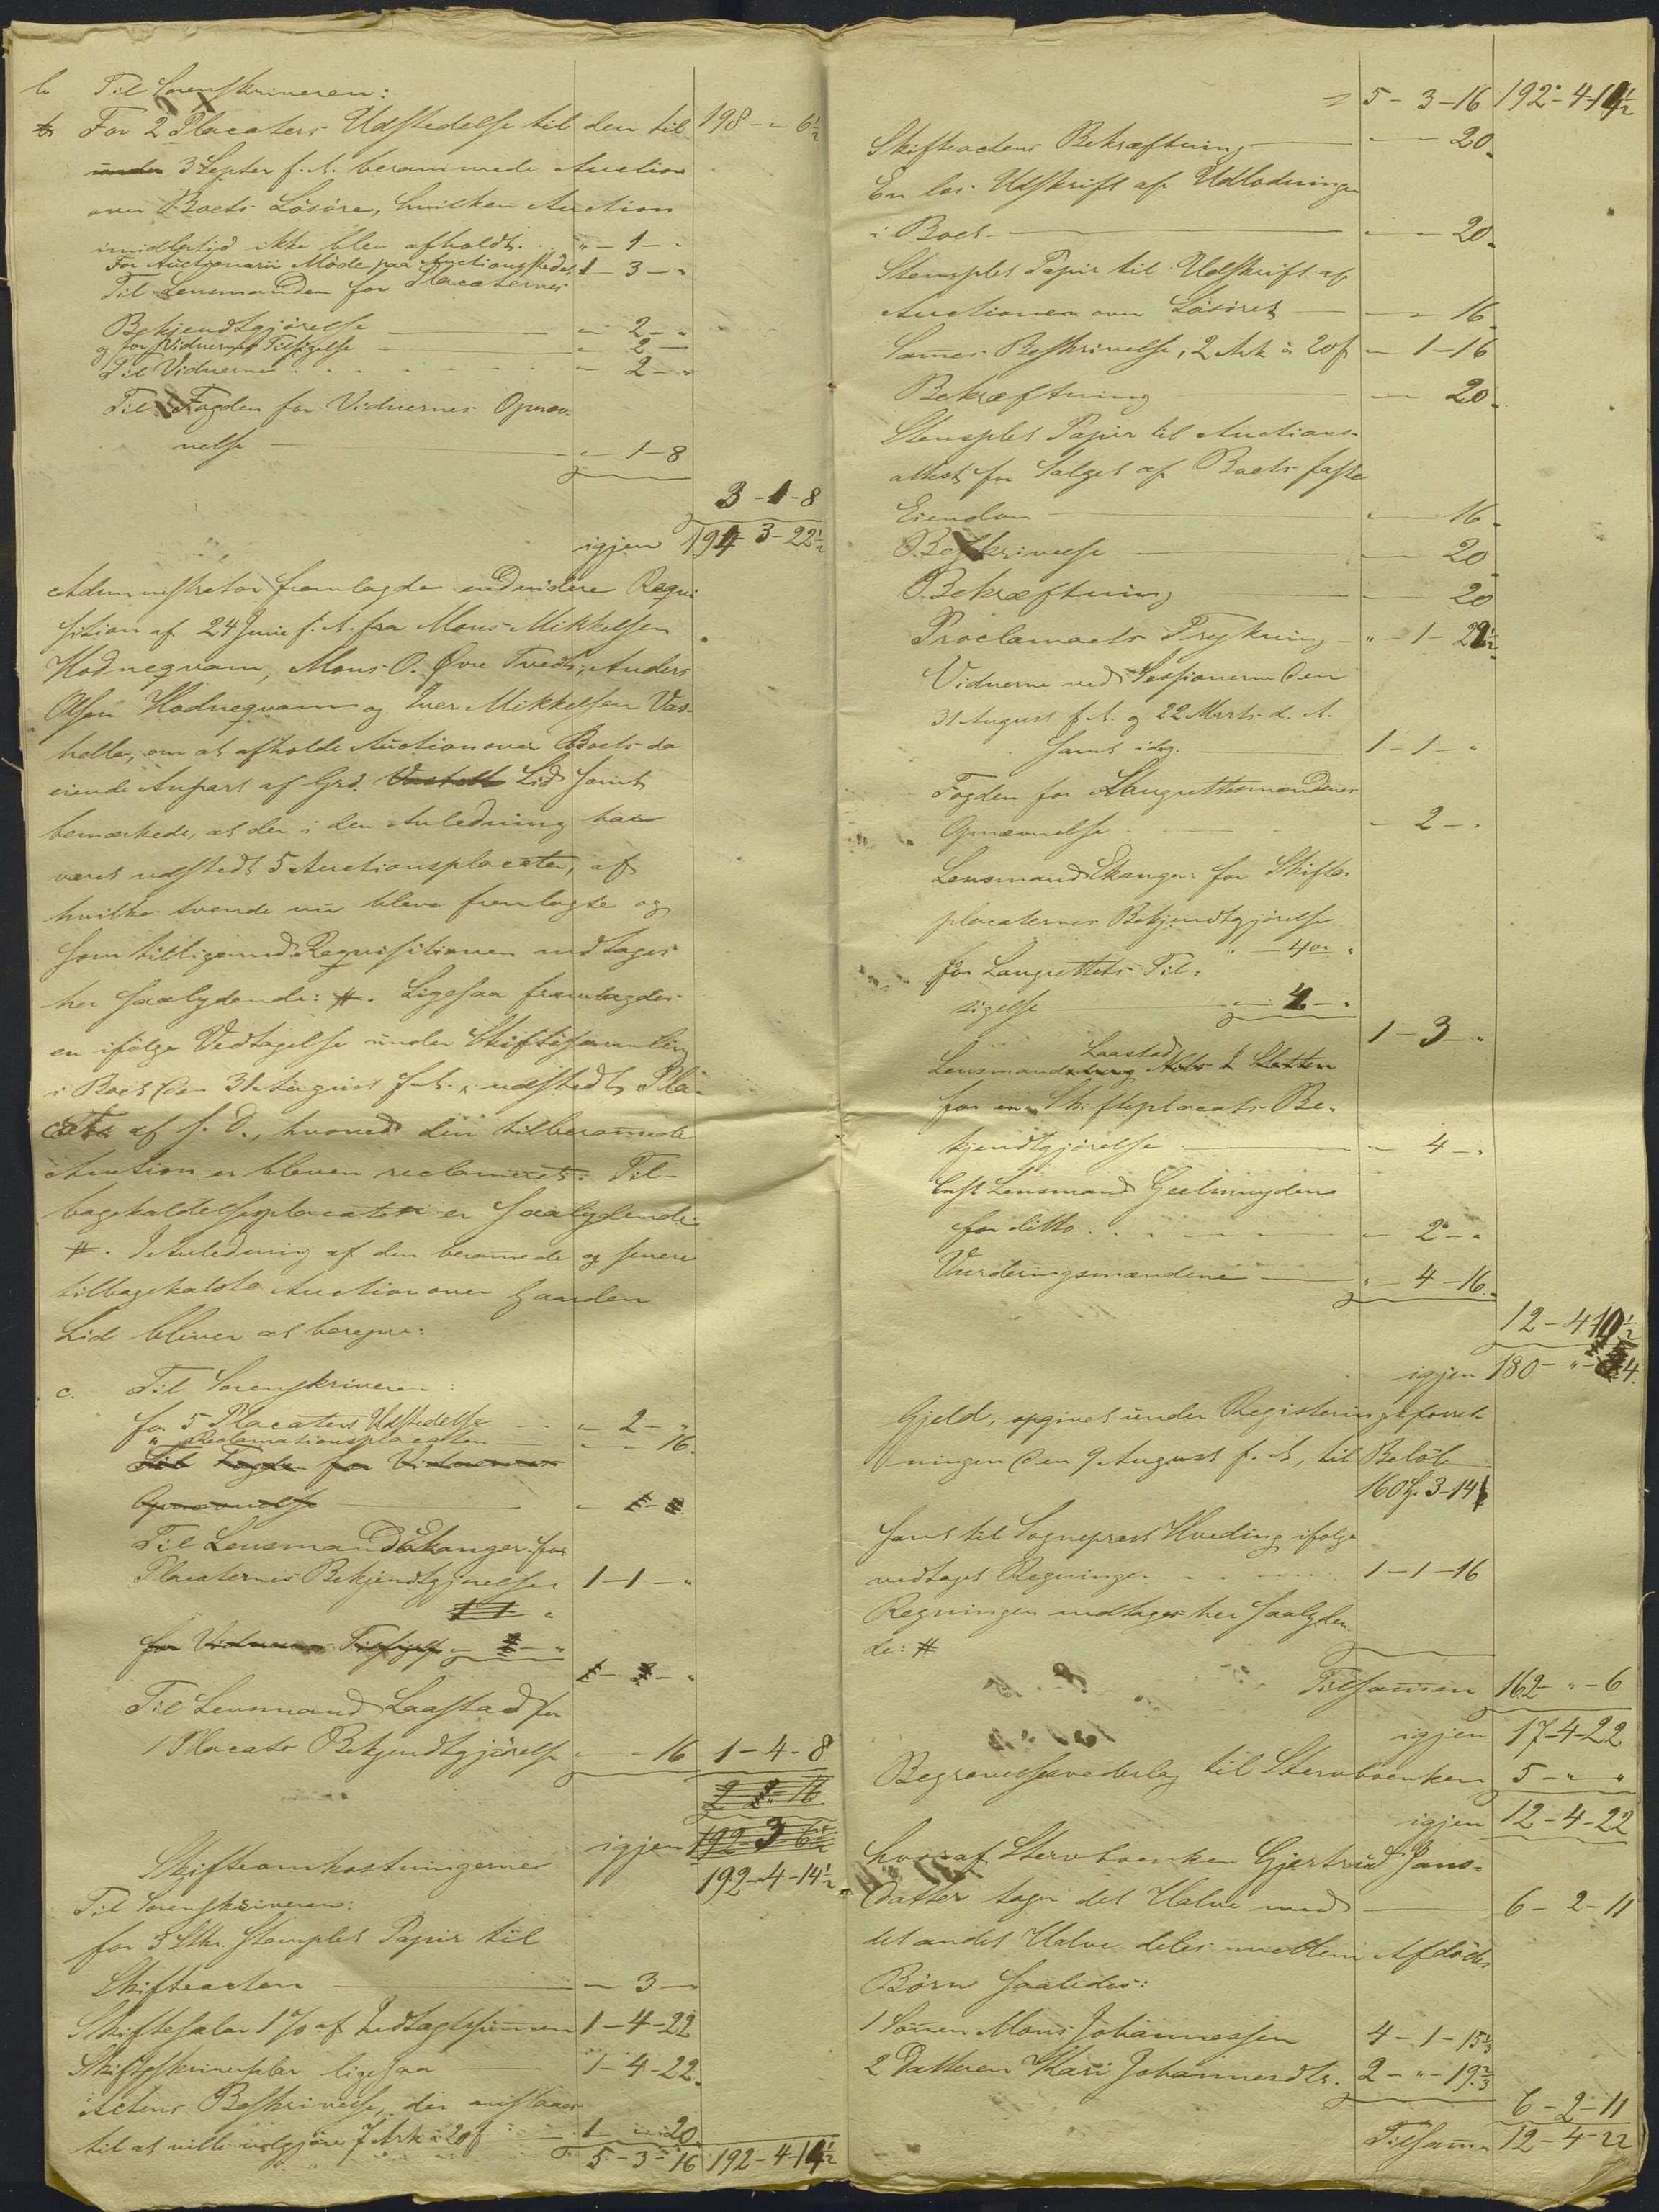 b Til Sorenskriveren:
For 2 Placaters Udstedelse til den til 198 - " - 6 1/2
3 Septer f. A. berammede Auction
over Boets Lösöre, hvilken Auction
imidlertid ikke blev afholdt. " - 1 - "
For Auctionarii Möde paa Auctionsstedet 1 - 3 - "
Til Lensmanden for Placaternes
Bekjendtgjörelse " - 2 - "
og for Vidnernes Tilsigelse " - 2 -
Til Vidnerne " - 2 - "
Til Fogden for Vidnernes Opnæv-
nelse " - 1 - 8
3 - 1 - 8
igjen 194 - 3 - 22 1/2
Administrator fremlagde endvidere Reqvi
sition af 24 Juni f. A. fra Mons Mikkelsen
Hodneqvam, Mons O. Øvre Tvedt, Anders
Olsen Hodneqvam og Iver Mikkelsen Vas-
helle, om at afholde Auction over Boets da
eiende Anpart af Grd. Lid samt
bemærkede, at der i den Anledning har
været udstedt 5 Auctionsplacater, af
hvilke tvende nu bleve fremlagte og
som tilligemed Reqvisitionen indtages
her saalydende: #. Ligesaa fremlagdes
en ifölge Vedtagelse under Skiftesamling
i Boet den 31 August f. A. udstedt Pla-
cat af s. D., hvorved den tilberamede
Auction er bleven reclameret: Til-
bagekaldelsesplacaten er saalydende:
#. I Anledning af den beramede og senere
tilbagekaldte Auction over Gaarden
Lid bliver at beregne:
c. Til Sorenskriveren:
for 5 Placaters Udstedelse " - 2 - "
" Reclamationsplacaten " - " - 16.
Til Fogden for Vidnernes
Opnævnelse
Til Lensmand Ekanger for
Placaternes Bekjendtgjörelse 1 - 1 - "
1 1 "
for Vidnernes Tilsigelse
Til Lensmand Laastad for
1 Placats Bekjendtgjörelse " - " - 16 1 - 4 - 8
2 - 2 - 16
igjen 192 - 3 - 6 1/2
Skifteomkostningerne 192 - 4 - 14 1/2
Til Sorenskriveren:
for 3 Stkr. stemplet Papir til
Skifteacten " - 3 - "
Skiftesalar 1 % af Indtægtssummen 1 - 4 - 22
Skifteskriversalar ligesaa 1 - 4 - 22.
Actens Beskrivelse, der antages
til at ville udgjöre 7 Ark à 20 ß 1 - " - 20
5 - 3 - 16 192 - 4 - 14 1/2
5 - 3 - 16 192 - 4 - 14 1/2
Skifteactens Bekræftning " - " - 20.
En los Udskrift af Udlodningen
i Boet " - " - 20.
Stemplet Papir til Udskrift af
Auctionen over Lösöret " - " - 16
Sammes Beskrivelse, 2 Ark à 20 ß " - 1 - 16
Bekræftning " - " - 20.
Stemplet Papir til Auctions-
attest for Salget af Boets faste
Eiendom " - " - 16.
Beskrivelse " - " - 20
Bekræftning " - " - 20
Proclamaets Trykning " - 1 - 22 1/2
Vidnerne ved Sessionerne den
31 August f. A. og 22 Marts d. A.
samt idag. 1 - 1 - "
Fogden for Laugrettesmændenes
Opnævnelse " - 2 - "
Lensmand Ekanger: for Skifte-
placaternes Bekjendtgjörelse
" - 4 - "
for Laugrettets Til-
sigelse " - 4 - "
1 - 3 - "
Laastad
Lensmand
for en Skifteplacats Be-
kjendtgjörelse " - 4 - "
Const Lensmand Geelmuyden
for ditto " - 2 - "
Vurderingsmændene " - 4 - 16.
12 - 4 - 10 1/2
igjen 180 - " - 4.
Gjeld, opgivet under Registeringsforret-
ningen den 9 August f. A., til Belöb
160 Sp. 3 - 14
samt til Sognepræst Hveding ifölge
vedtaget Regning 1 - 1 - 16
Regningen indtages her saalyden
de: #
Tilsammen 162 - " - 6
igjen 17 - 4 - 22
Begravelsesvederlag til Stervboenken 5 - " - "
igjen 12 - 4 - 22
hvoraf Stervboenken Gjertrud Jons-
datter tager det Halve med 6 - 2 - 11
det andet Halve deles mellem Afdödes
Børn saaledes:
1 Sönnen Mons Johannessen 4 - 1 - 15 1/3
2 Datteren Kari Johannesdtr. 2 - " - 19 2/3
6 - 2 - 11
Tilsam̄en 12 - 4 - 22